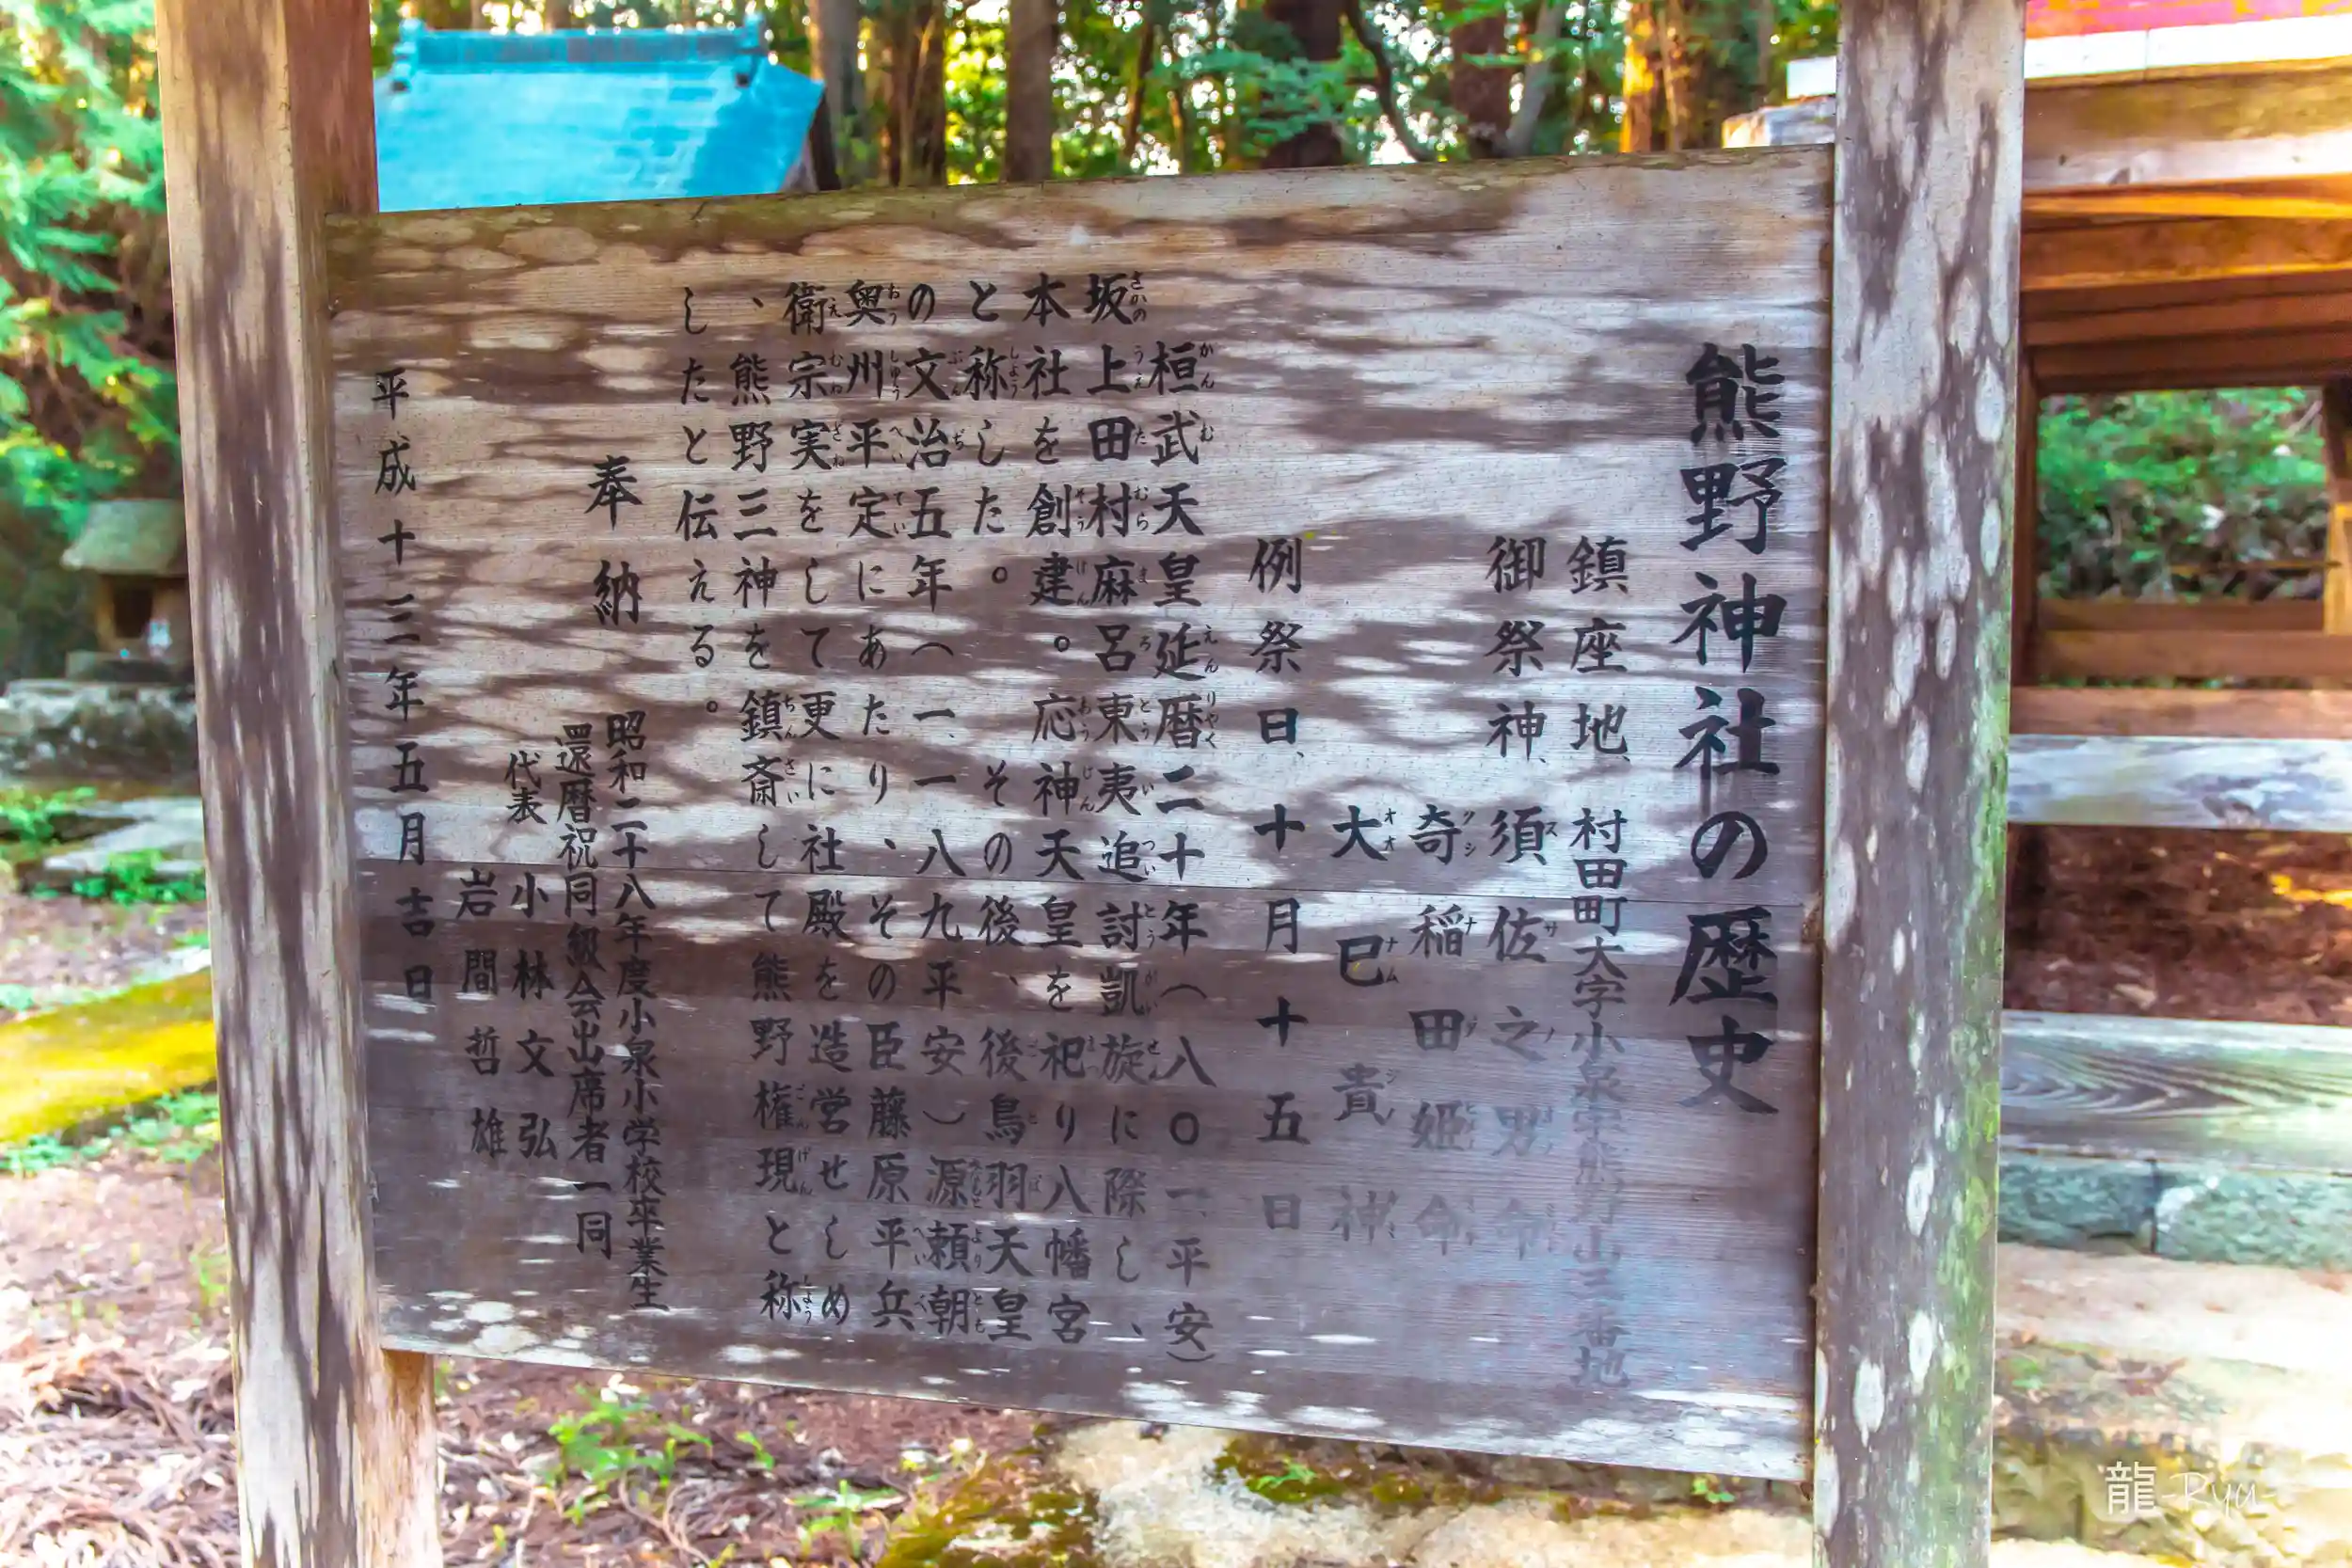 熊野神社の歴史
鎮座地、村田町大字小泉字熊野山三番地
御祭神、須佐之男命
奇稲田姫命
大巳貴神
例祭日、十月十五日
桓武天皇延暦二十年（八〇一、平安）
坂上田村麻呂東夷追討凱旋に際し、
本社を創建。応神天皇を祀り八幡宮
と称した。その後、後鳥羽天皇
の文治五年（一、一八九平安）源頼朝
奥州平定にあたり、その臣藤原平兵
衛宗実をして更に社殿を造営せしめ
、熊野三神を鎮斎して熊野権現と称
したと伝える。
奉納
昭和二十八年度小泉小学校卒業生
還暦祝同級会出席者一同
代表
小林文弘
岩間哲雄
平成十三年五月吉日
龍-Ryu-